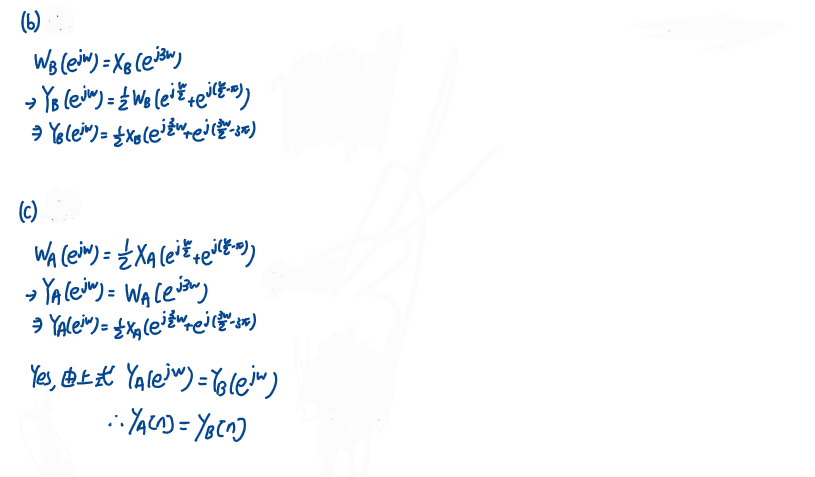 (b)
W_B(e^{jw}) = X_B(e^{j3w})
→ Y_B(e^{jw}) = \frac{1}{2} W_B(e^{j\frac{w}{2}} + e^{j(\frac{w}{2}-π)})
⇒ Y_B(e^{jw}) = \frac{1}{2} X_B(e^{j\frac{3}{2}w} + e^{j(\frac{3w}{2}-3π)})
(c)
W_A(e^{jw}) = \frac{1}{2} X_A(e^{j\frac{w}{2}} + e^{j(\frac{w}{2}-π)})
→ Y_A(e^{jw}) = W_A(e^{j3w})
⇒ Y_A(e^{jw}) = \frac{1}{2} X_A(e^{j\frac{3}{2}w} + e^{j(\frac{3w}{2}-3π)})
Yes, 由上式 Y_A(e^{jw}) = Y_B(e^{jw})
∴ Y_A[n] = Y_B[n]